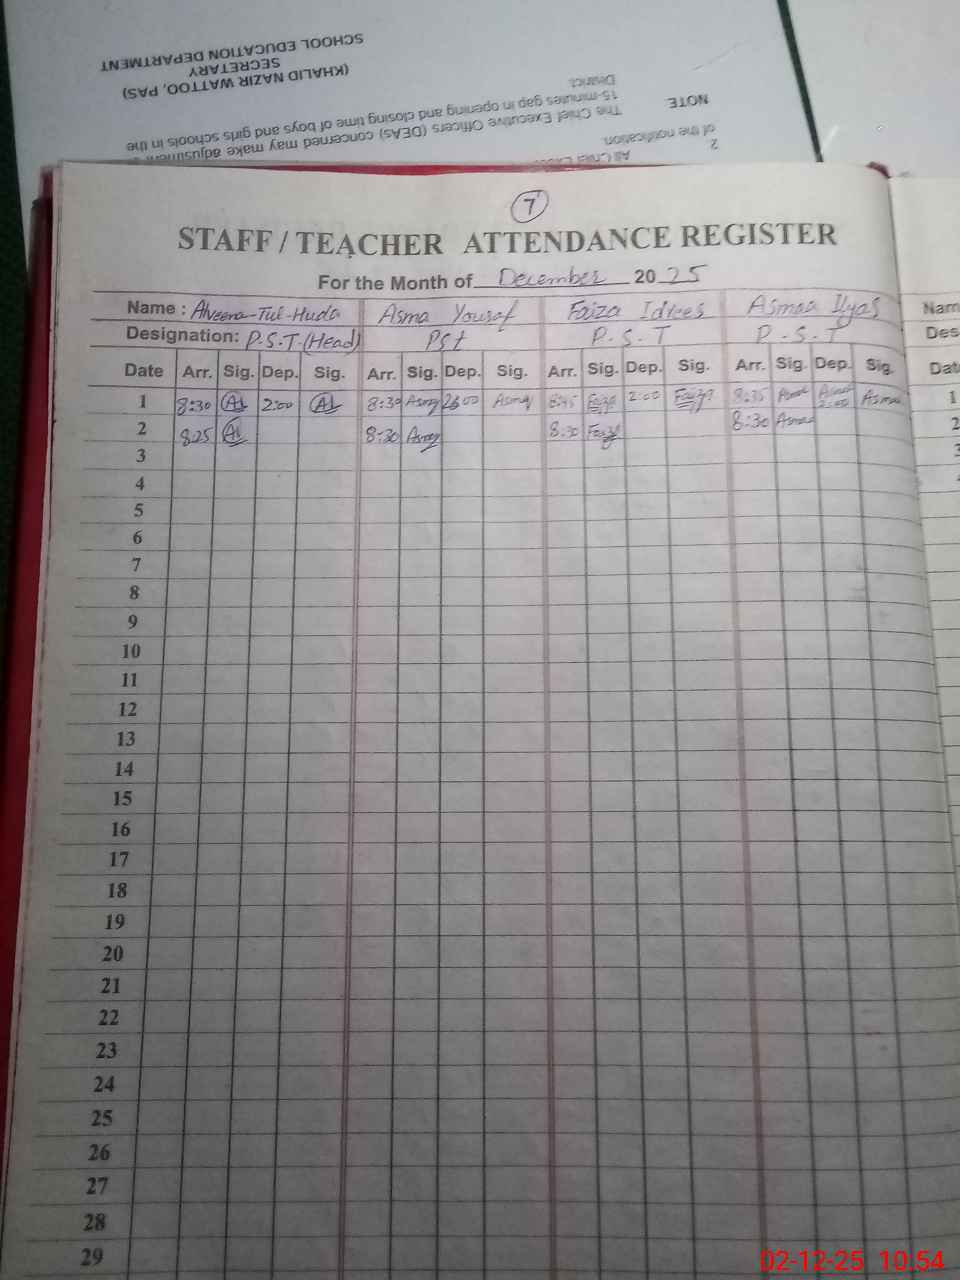 SCHOOL EDUCATION DEPARTMENT
SECRETARY
(KHALID NAZIR WATTOO, PAS)
District.
15-minutes gap in opening and closing time of boys and girls schools in the
The Chief Executive Officers (DEAs) concerned may make adjustment
NOTE
of the notification.
2
7
STAFF / TEACHER ATTENDANCE REGISTER
For the Month of December 2025
Name : Alveena-Tul-Huda Asma Yousaf Faiza Idrees Asmaa Ilyas Nam
Designation: P.S.T.(Head) PSt P.S.T P.S.T Des
Date Arr. Sig. Dep. Sig. Arr. Sig. Dep. Sig. Arr. Sig. Dep. Sig. Arr. Sig. Dep. Sig. Dat
1 8:30 2:00 8:30 Asma Asma 8:45 Faiza 2:00 Faiza 8:35 Asmaa Asmaa 2:00 Asmaa 1
2 8:25 8:30 Asma 8:30 Faiza 8:30 Asmaa 2
3
4
5
6
7
8
9
10
11
12
13
14
15
16
17
18
19
20
21
22
23
24
25
26
27
28
29
02-12-25 10:54